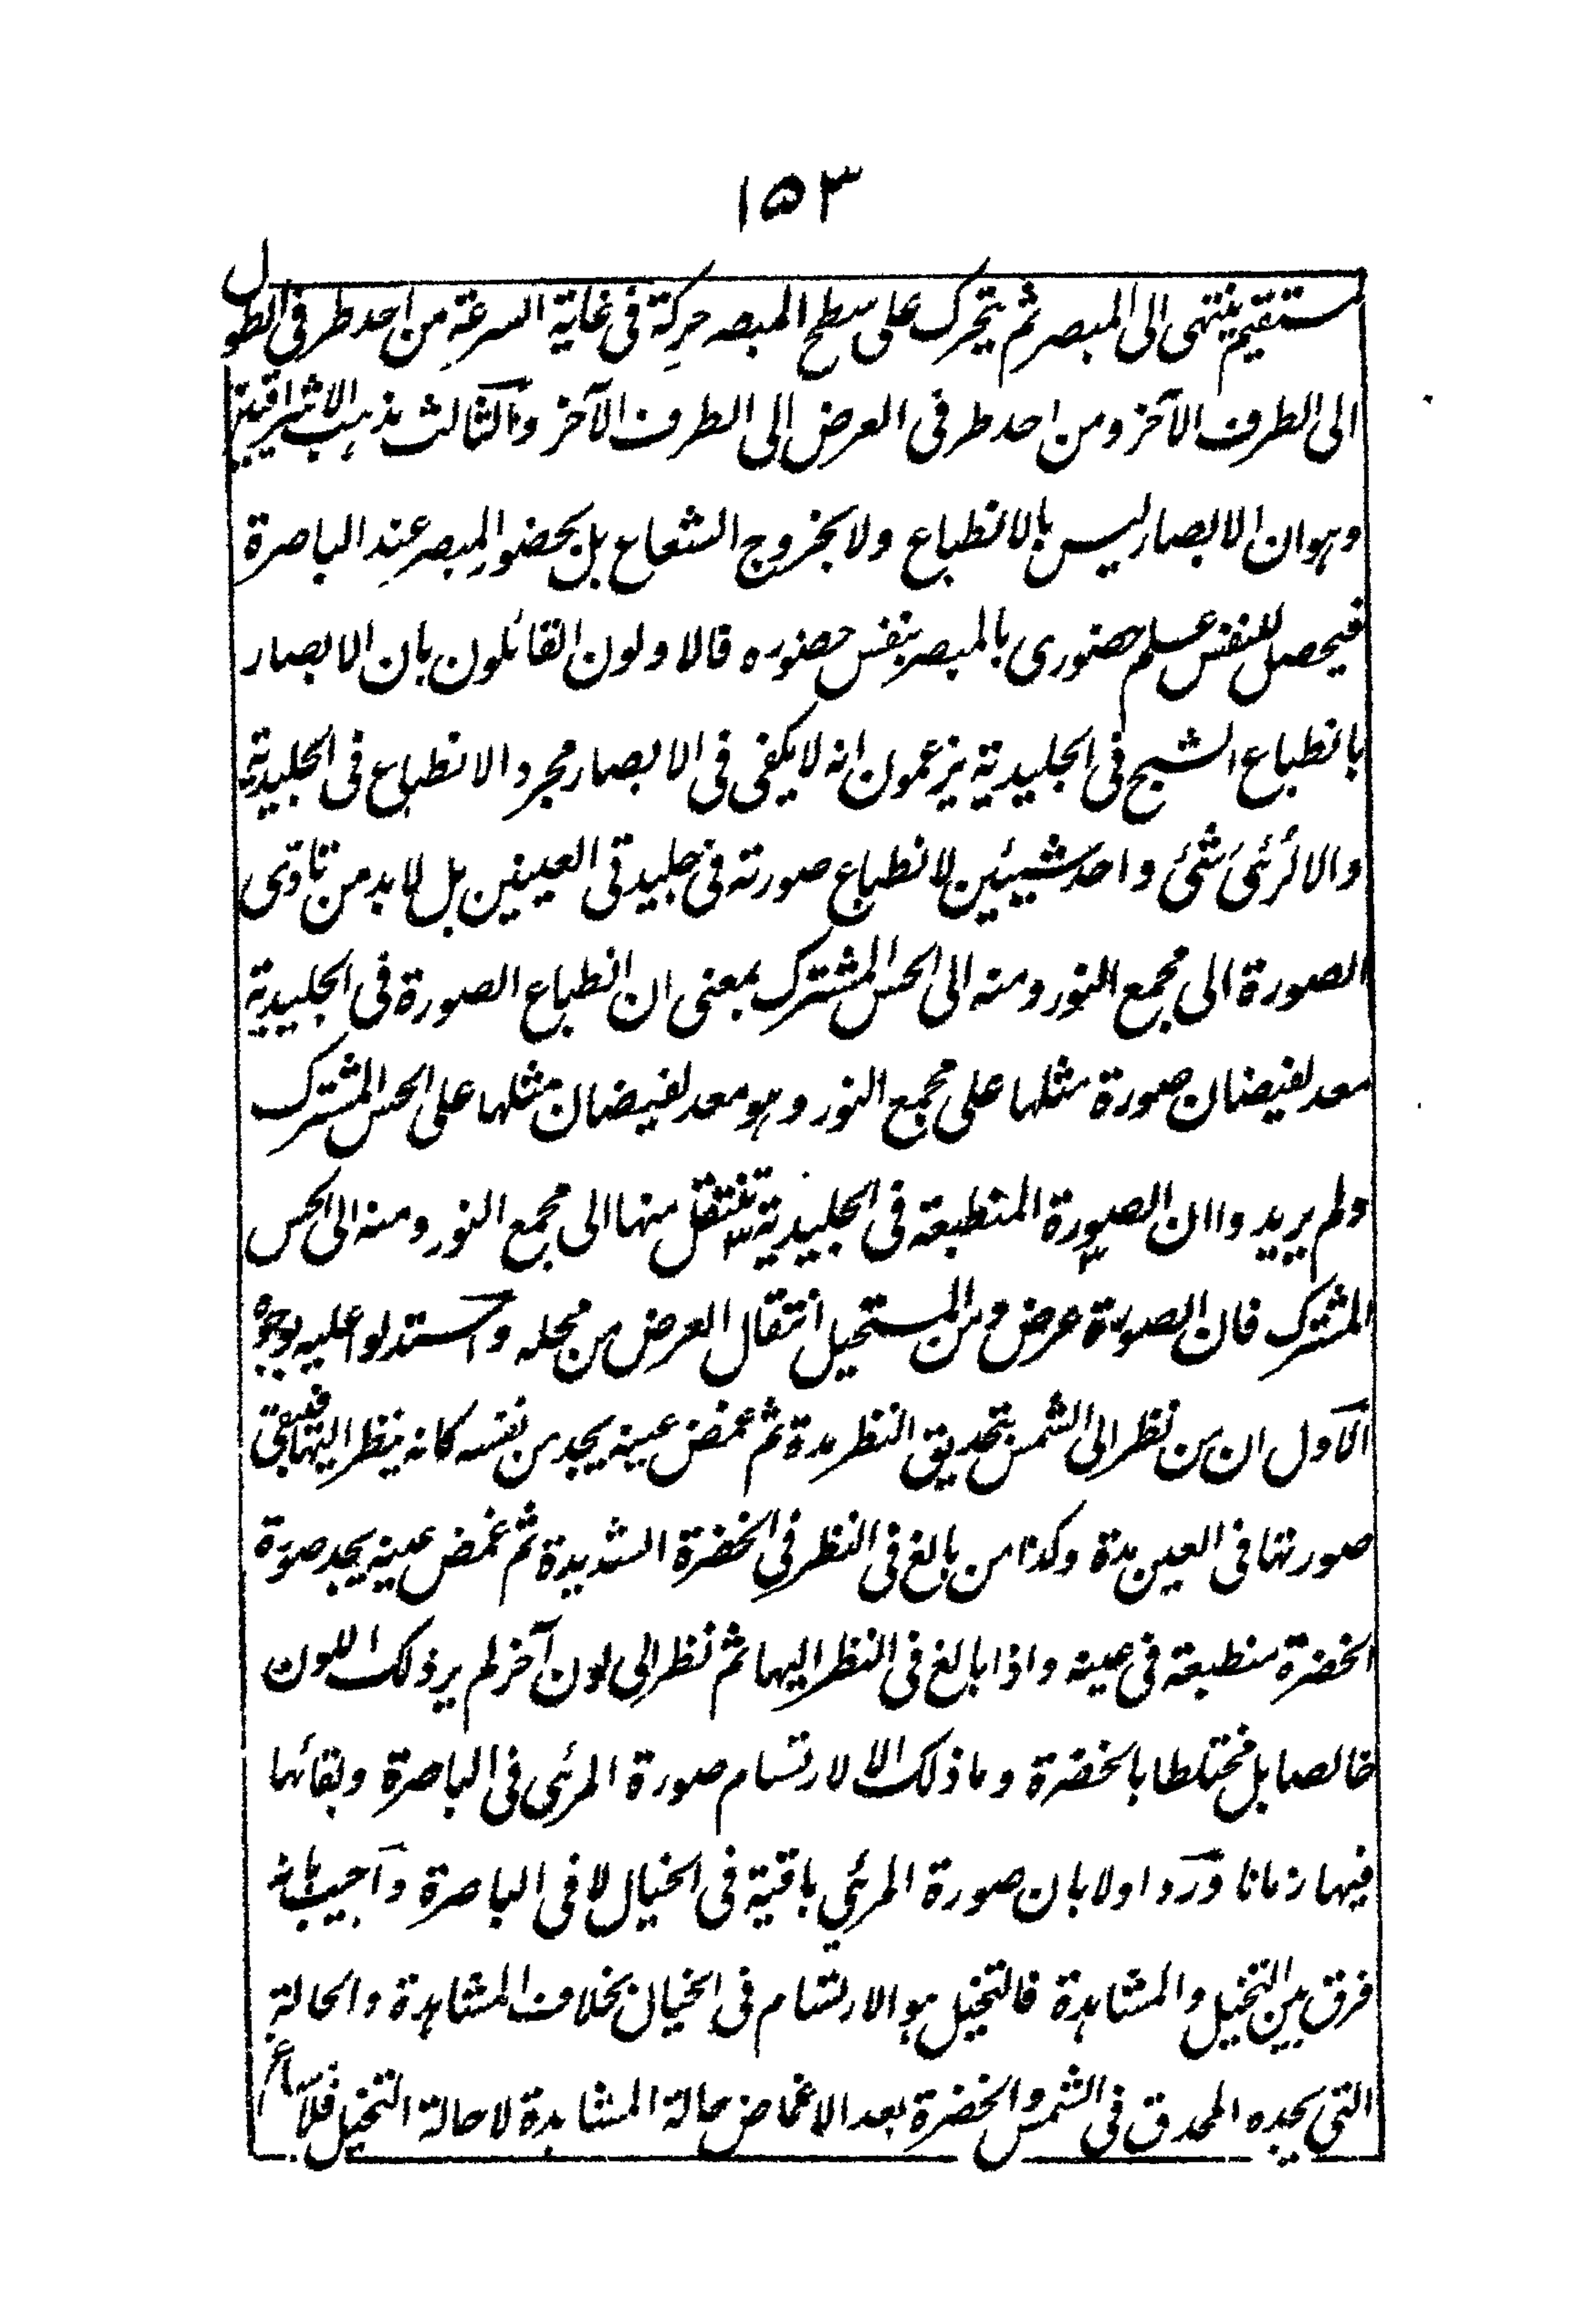 ١٥٣
مستقيم ينتهى الى المبصر ثم يتحرك على سطح المبصر حركة فى غاية السرعة من احد طرفى الطول
الى الطرف الآخر ومن احد طرفى العرض الى الطرف الآخر والثالث مذهب الاشراقيين
وهو ان الابصار ليس بالانطباع ولا بخروج الشعاع بل بحضور المبصر عند الباصرة
فيحصل للنفس علم حضورى بالمبصر بنفس حضوره قالا ولون القائلون بان الابصار
بانطباع الشبح فى الجليدية يزعمون انه لا يكفى فى الابصار مجرد الانطباع فى الجليدية
والا لرئى شئ واحد شيئين لانطباع صورته فى جليدتى العينين بل لا بد من تادى
الصورة الى مجمع النور ومنه الى الحس المشترك بمعنى ان انطباع الصورة فى الجليدية
معد لفيضان صورة مثلها على مجمع النور وهو معد لفيضان مثلها على الحس المشترك
ولم يريدوا ان الصورة المنطبعة فى الجليدية تنتقل منها الى مجمع النور ومنه الى الحس
المشترك فان الصورة عرض ومن المستحيل انتقال العرض من محله واستدلوا عليه بوجوه
الاول ان من نظر الى الشمس بتحديق النظر مدة ثم غمض عينيه يجد من نفسه كانه ينظر اليها فيبقى
صورتها فى العين مدة وكذا من بالغ فى النظر فى الخضرة الشديدة ثم غمض عينيه يجد صورة
الخضرة منطبعة فى عينه واذا بالغ فى النظر اليها ثم نظر الى لون آخر لم ير ذلك اللون
خالصا بل مختلطا بالخضرة وما ذلك الا لارتسام صورة المرئى فى الباصرة وبقائها
فيها زمانا ورد اولا بان صورة المرئي باقية فى الخيال لا فى الباصرة واجيب بانه
فرق بين التخيل والمشاهدة فالتخيل هو الارتسام فى الخيال بخلاف المشاهدة والحالة
التى يجده المحدق فى الشمس والخضرة بعد الاغماض حالة المشاهدة لا حالة التخيل فلا مساغ